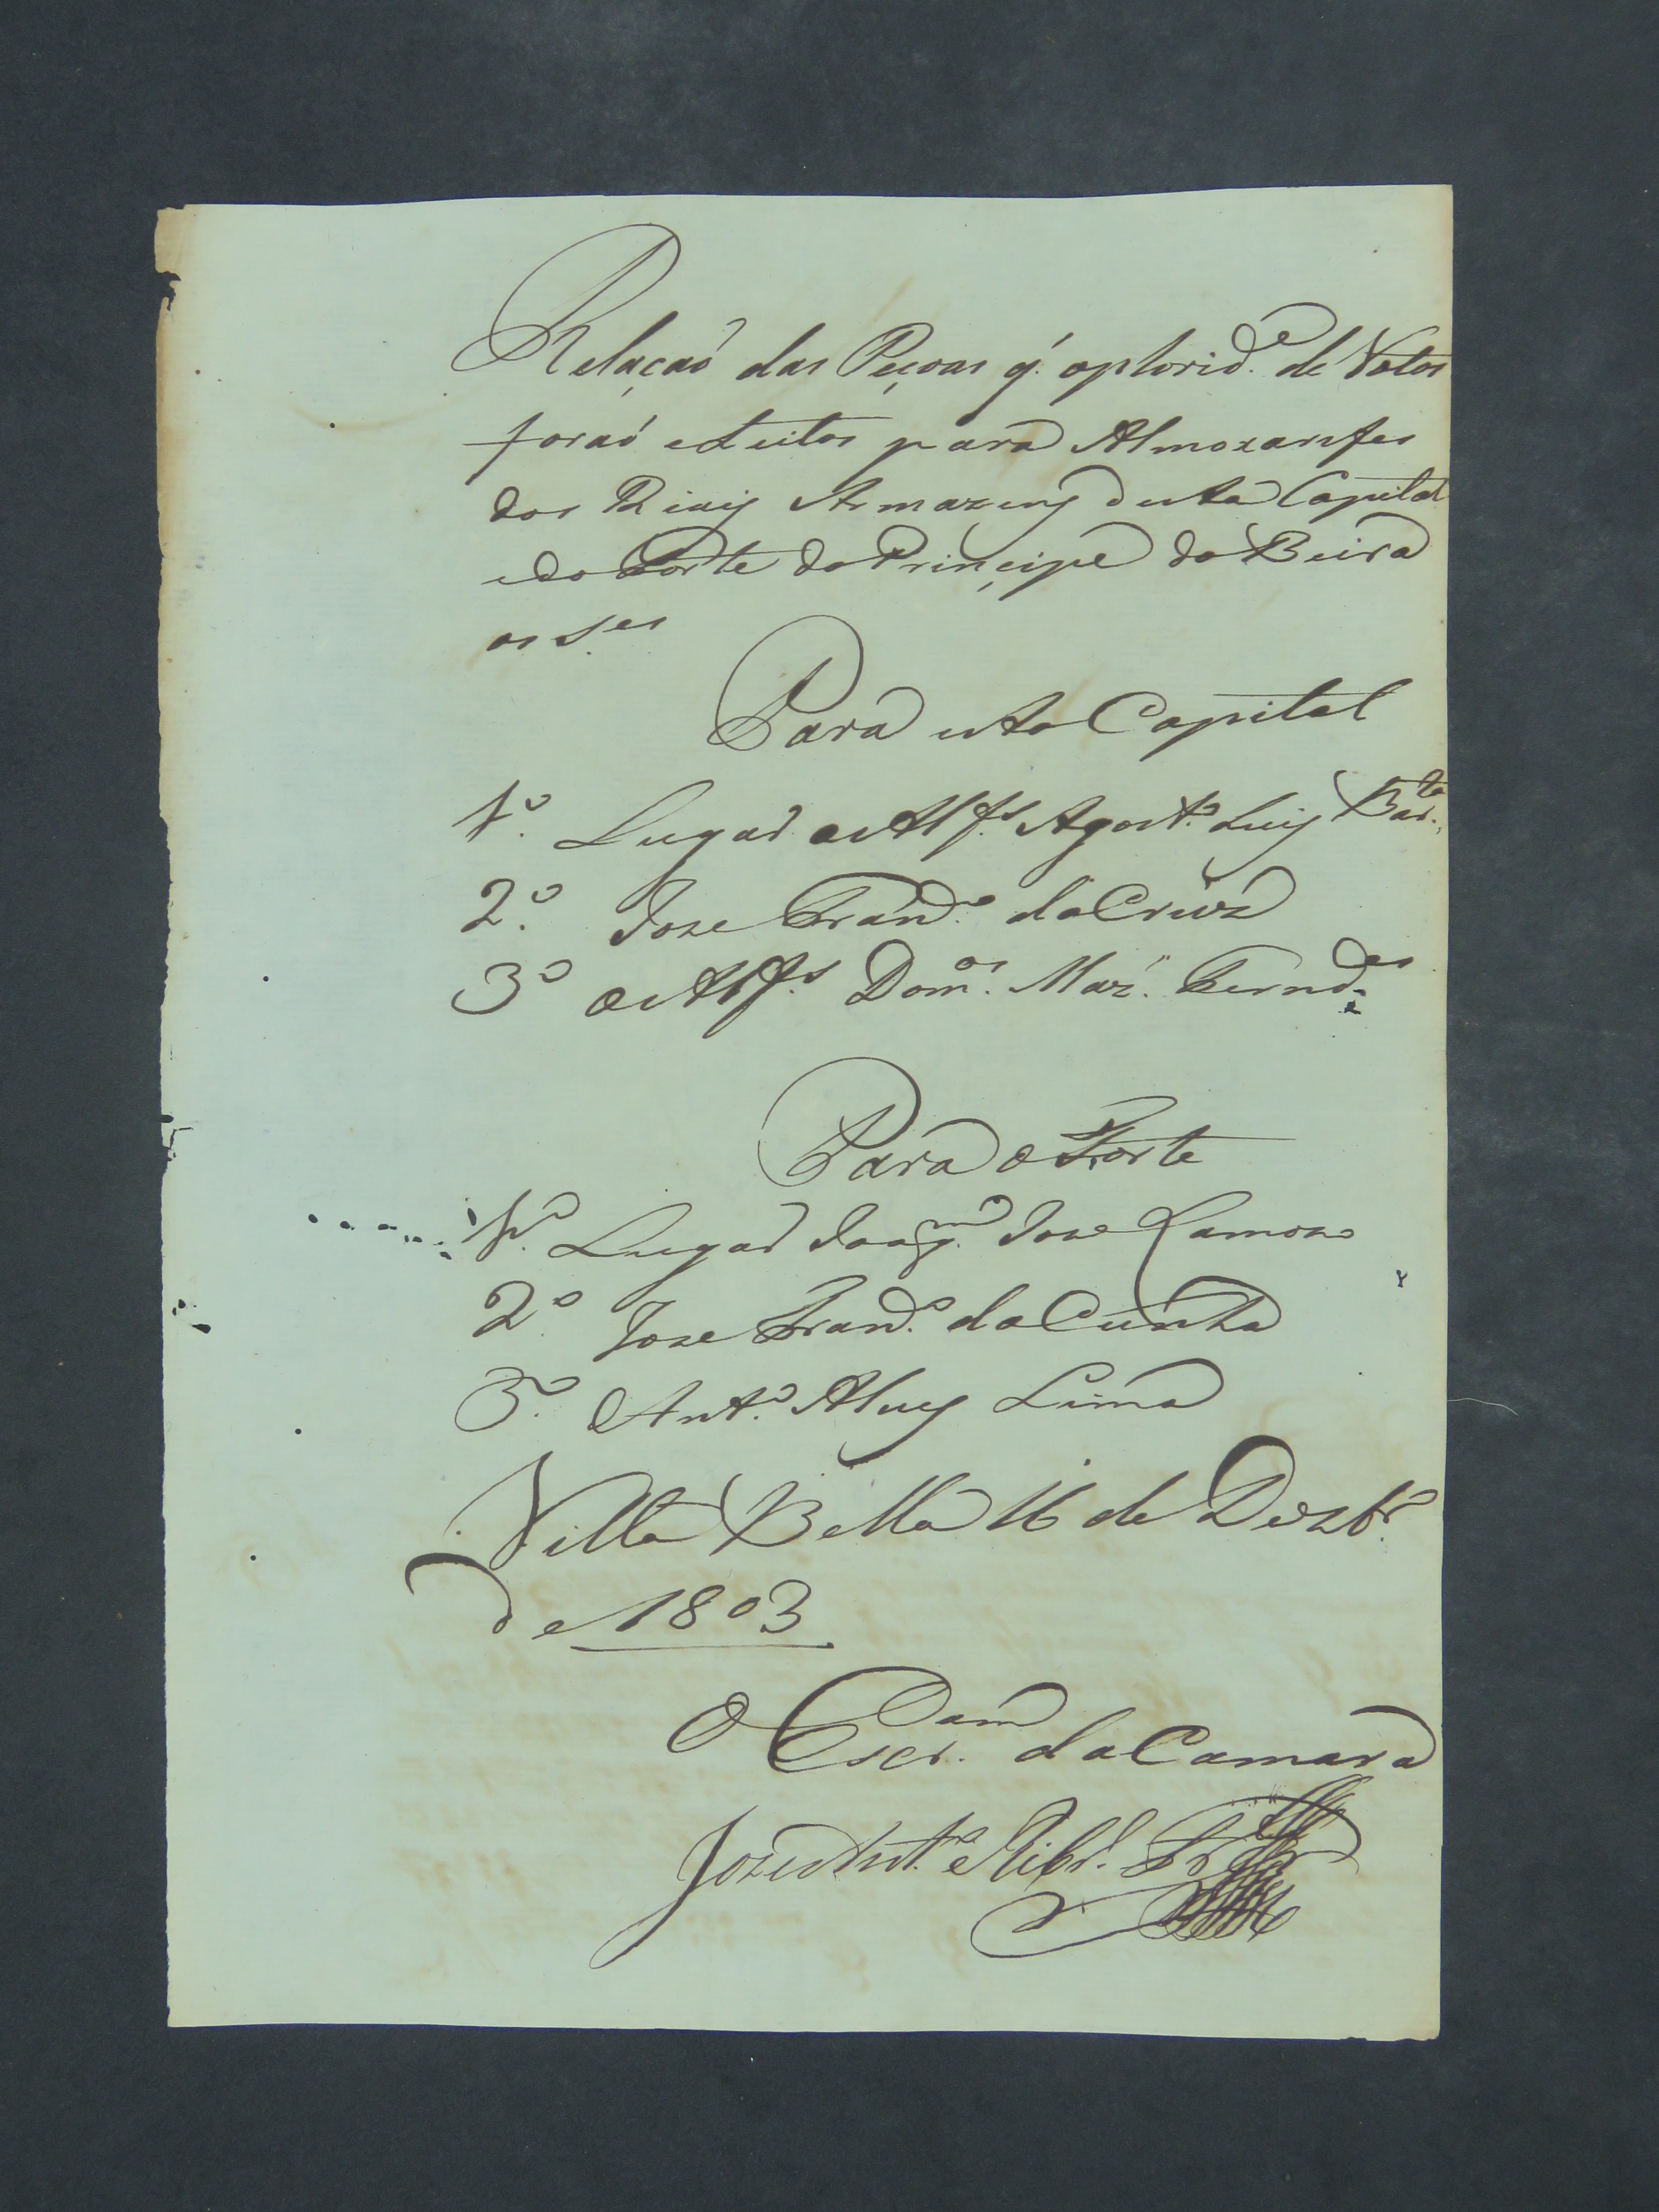 Relaçaõ das Peçoas q. aplorid.e de Votos
foraõ eleitos para Almoxarifes
dos Riais Armazens desta Capital
e do Forte do Principe da Beira
os S.es
Para esta Capital
1.º Lugar o Alf.s Agost.º Luis
2.º Joze Fran.co da Cruz
3º o Alf.s Dom.os Maz. Fernd.es
Para o Forte
1.º Lugar Joaq.m Joze Ramos
2.º Joze Fran.co da Cunha
3.º Ant.º Alves Lima
Villa Bella 16 de Dezbr.º
de 1803
O Escr.am da Camara
Joze Ant.º Ribr.º